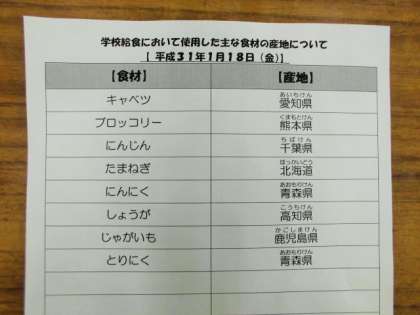 学校給食において使用した主な食材の産地について
【 平成３１年１月１８日（金）】
【食材】 【産地】
キャベツ 愛知県 あいちけん
ブロッコリー 熊本県 くまもとけん
にんじん 千葉県 ちばけん
たまねぎ 北海道 ほっかいどう
にんにく 青森県 あおもりけん
しょうが 高知県 こうちけん
じゃがいも 鹿児島県 かごしまけん
とりにく 青森県 あおもりけん